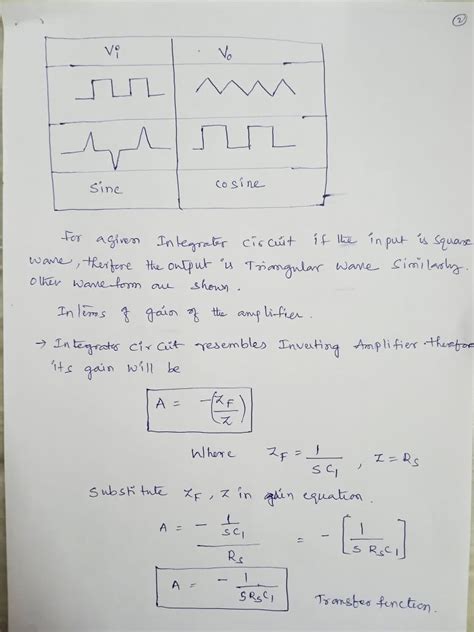 2
Vi Vo
Sine cosine
For a given Integrator circuit if the input is square
wave, therfore the output is Triangular wave Similarly.
other wave form are shown.
In terms of gain of the amplifier.
→ Integrator circuit resembles Inverting Amplifier therefore
its gain will be
A = -(ZF/Z)
Where ZF = 1/SC1 , Z = RS
Substitute ZF, Z in gain equation.
A = - (1/SC1)/RS = - [1/S RSC1]
A = - 1/SRSC1 Transfer function.